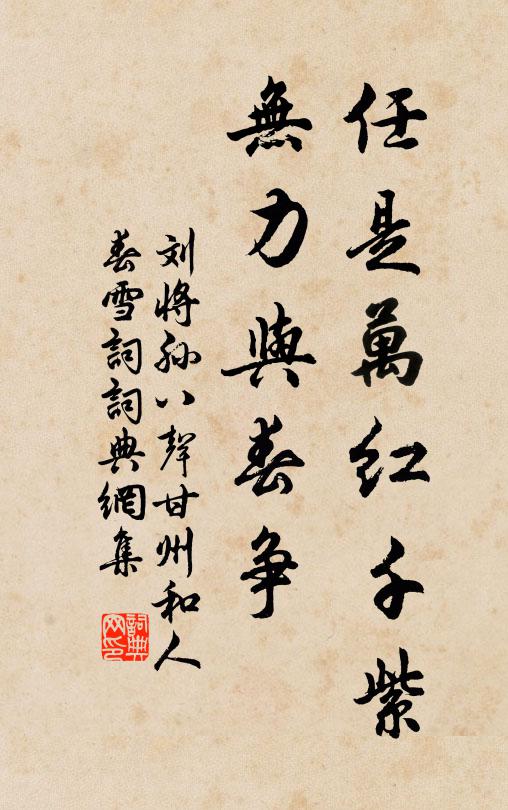 任是萬紅千紫
無力與春爭
刘將孙八聲甘州和人
春雪詞詞典網集
詞典
网印